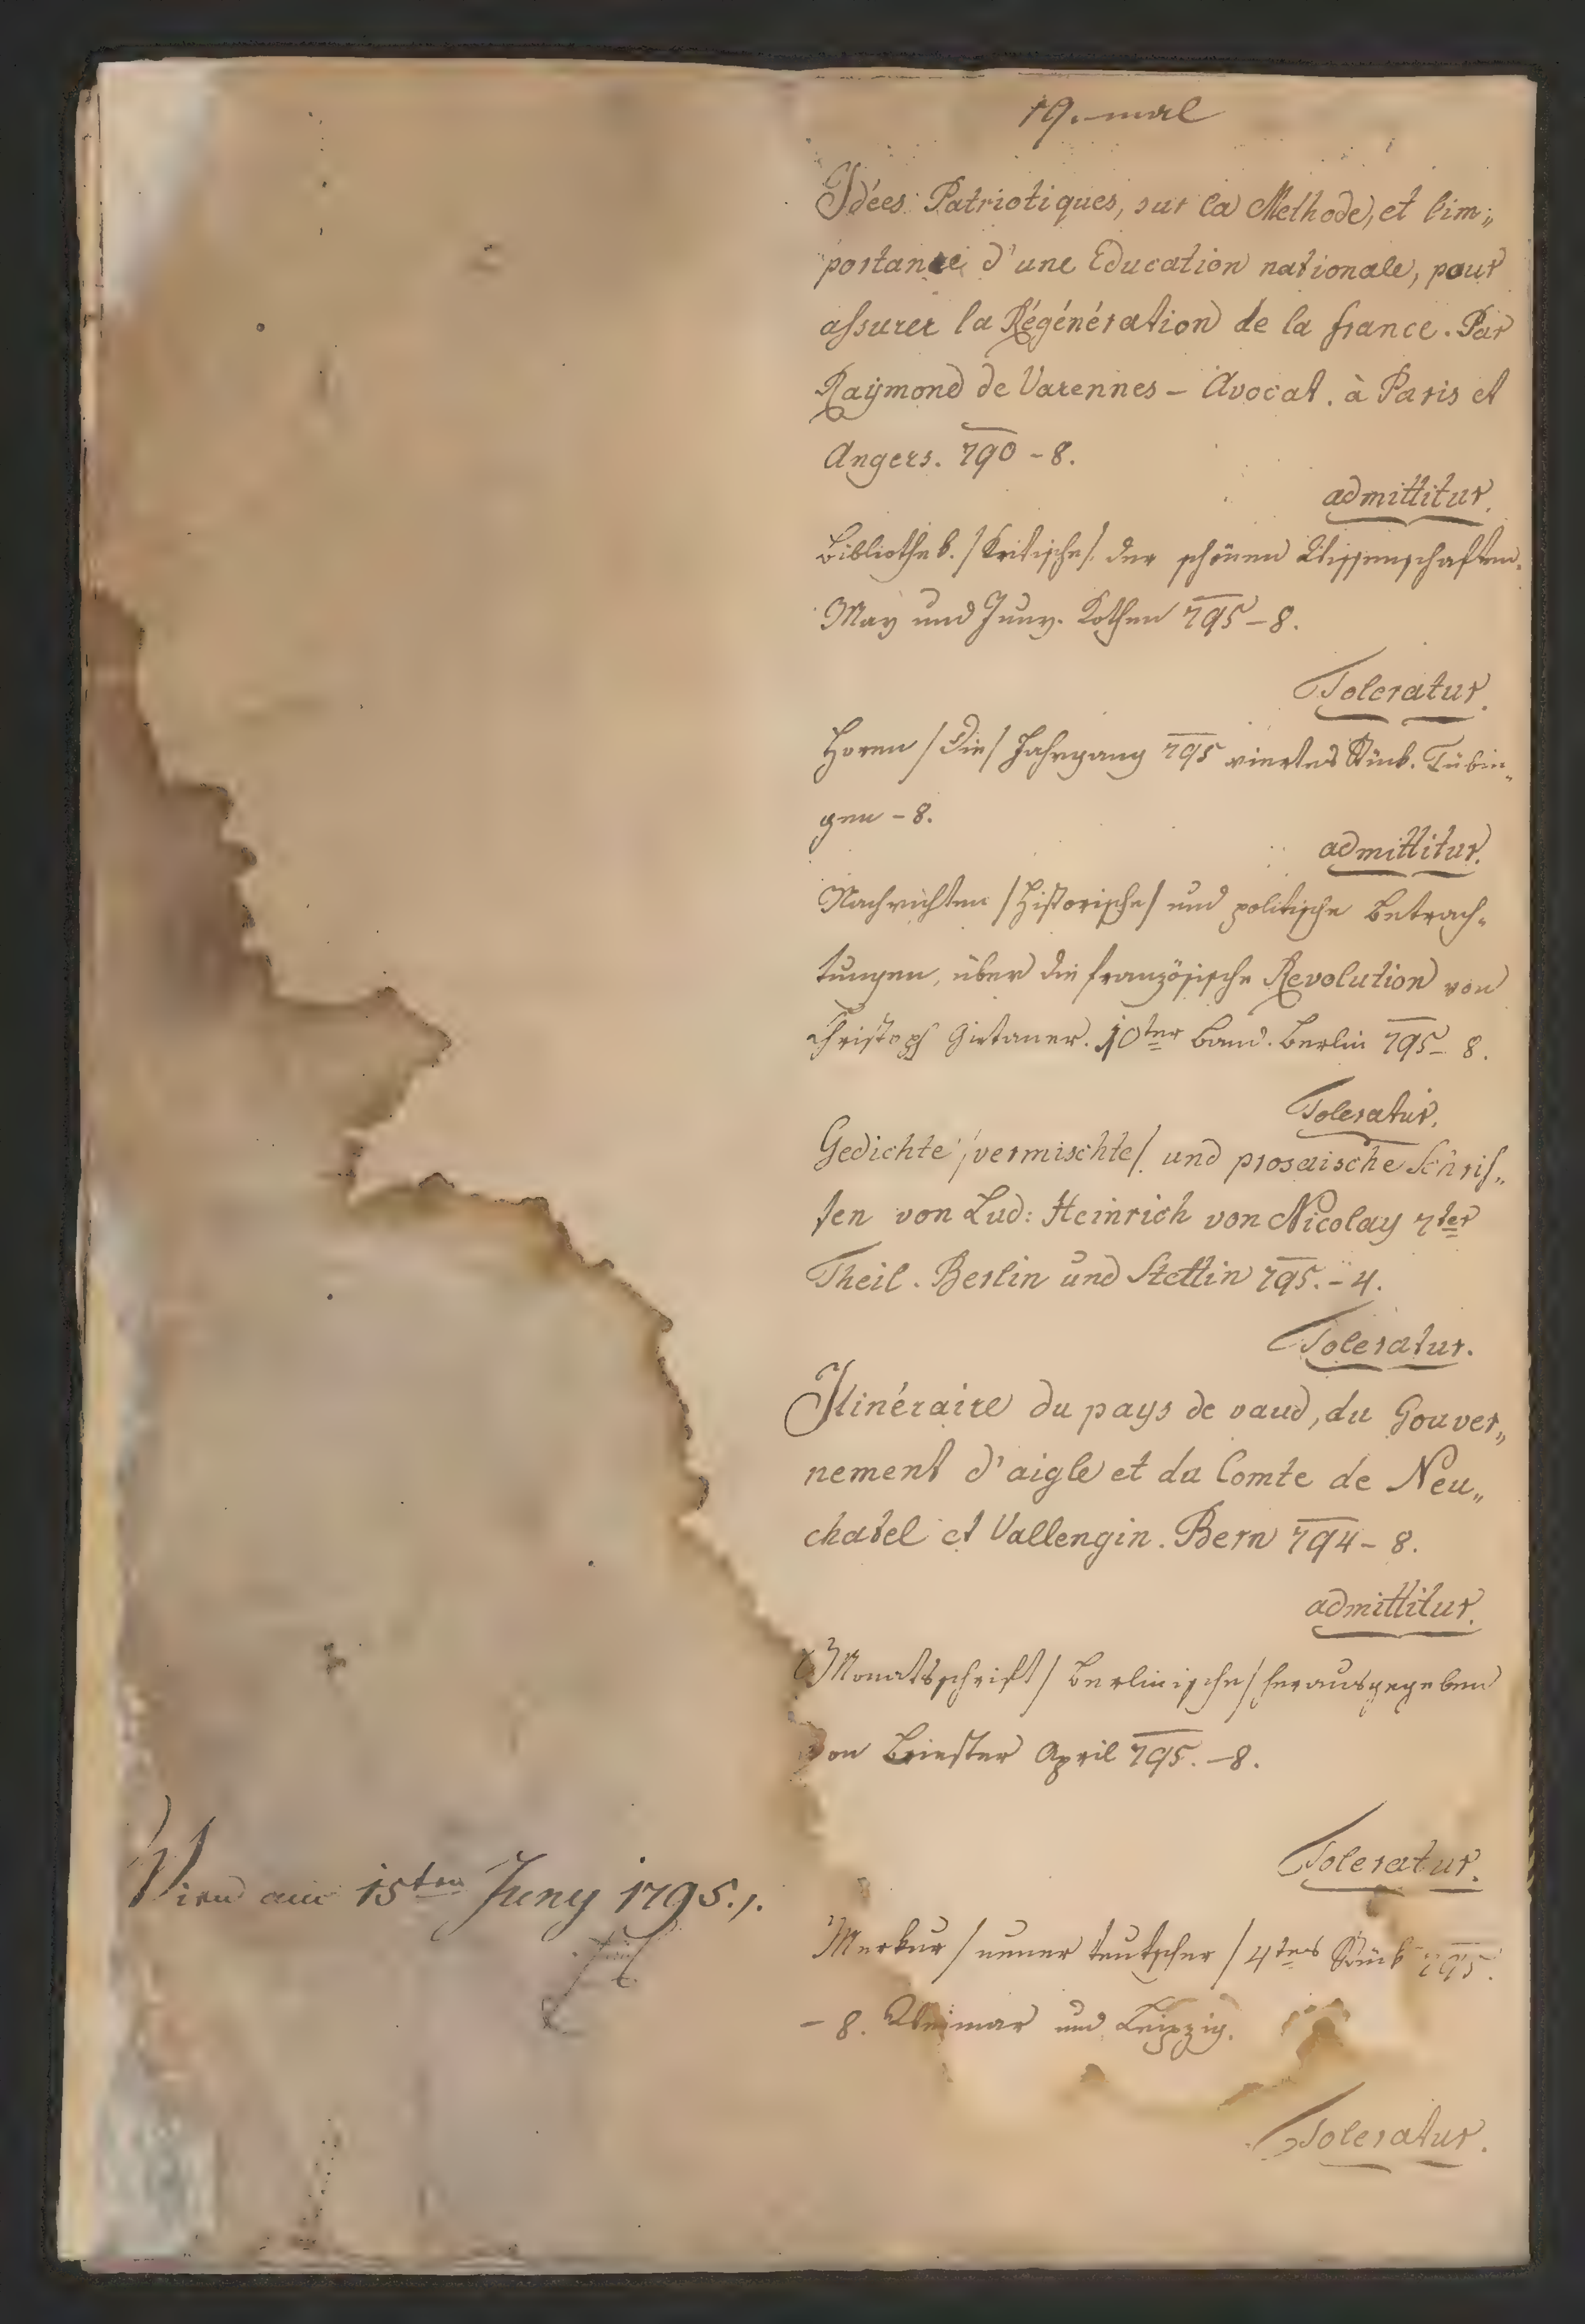 19.mal
Idées Patriotiques, sur la Methode, et lim„
portance d'une Education nationale, pour
assurer la Régénération de la france. Par
Raÿmond de Varennes – Avocat. à Paris et
Angers. 790 – 8.
admittitur.
Bibliothek. /Kritische/. der schönen Wissenschaften.
May und Juny. Kothen 795 – 8.
Toleratur.
Horen /Die/ Jahrgang 795 viertes Stück. Tübin„
gen – 8.
admittitur.
Nachrichten /Historische/ und politische Betrach„
tungen, über die französische Revolution von
Christoph Girtaner. 10ter Band. Berlin 795 – 8.
Toleratur.
Gedichte /vermischte/. und prosaische Schrif„
ten von Lud: Heinrich von Nicolay 7ter
Theil. Berlin und Stettin 795. – 4.
Toleratur.
Itinéraire du pays de vaud, du Gouver„
nement d'aigle et du Comte de Neu„
chatel et Vallengin. Bern 794 – 8.
admittitur.
Monatsschrift /Berlinische/ herausgegeben
von Briester April 795. – 8.
Toleratur.
Wien am 15ten Juny 1795./.
Merkur /neuer teutscher/ 4tes Stück 795.
– 8. Weimar und Leipzig.
Toleratur.